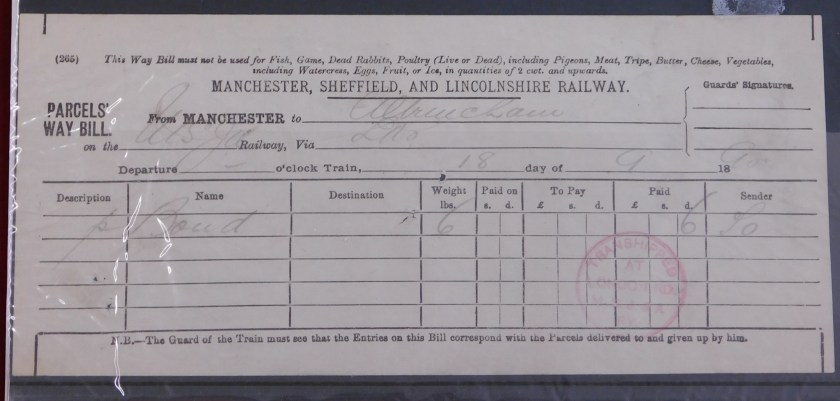 (265) This Way Bill must not be used for Fish, Game, Dead Rabbits, Poultry (Live or Dead), including Pigeons, Meat, Tripe, Butter, Cheese, Vegetables,
including Watercress, Eggs, Fruit, or Ice, in quantities of 2 cwt. and upwards.
MANCHESTER, SHEFFIELD, AND LINCOLNSHIRE RAILWAY.
Guards' Signatures.
PARCELS'
WAY-BILL.
From MANCHESTER to Altrincham
on the Railway, Via
Departure o'clock Train, 18 day of 9 18
Description Name Destination Weight lbs. Paid on s. d. To Pay £ s. d. Paid £ s. d. Sender
p Bond 6 6 So
TRANSHIPPED
AT
N.B.—The Guard of the Train must see that the Entries on this Bill correspond with the Parcels delivered to and given up by him.